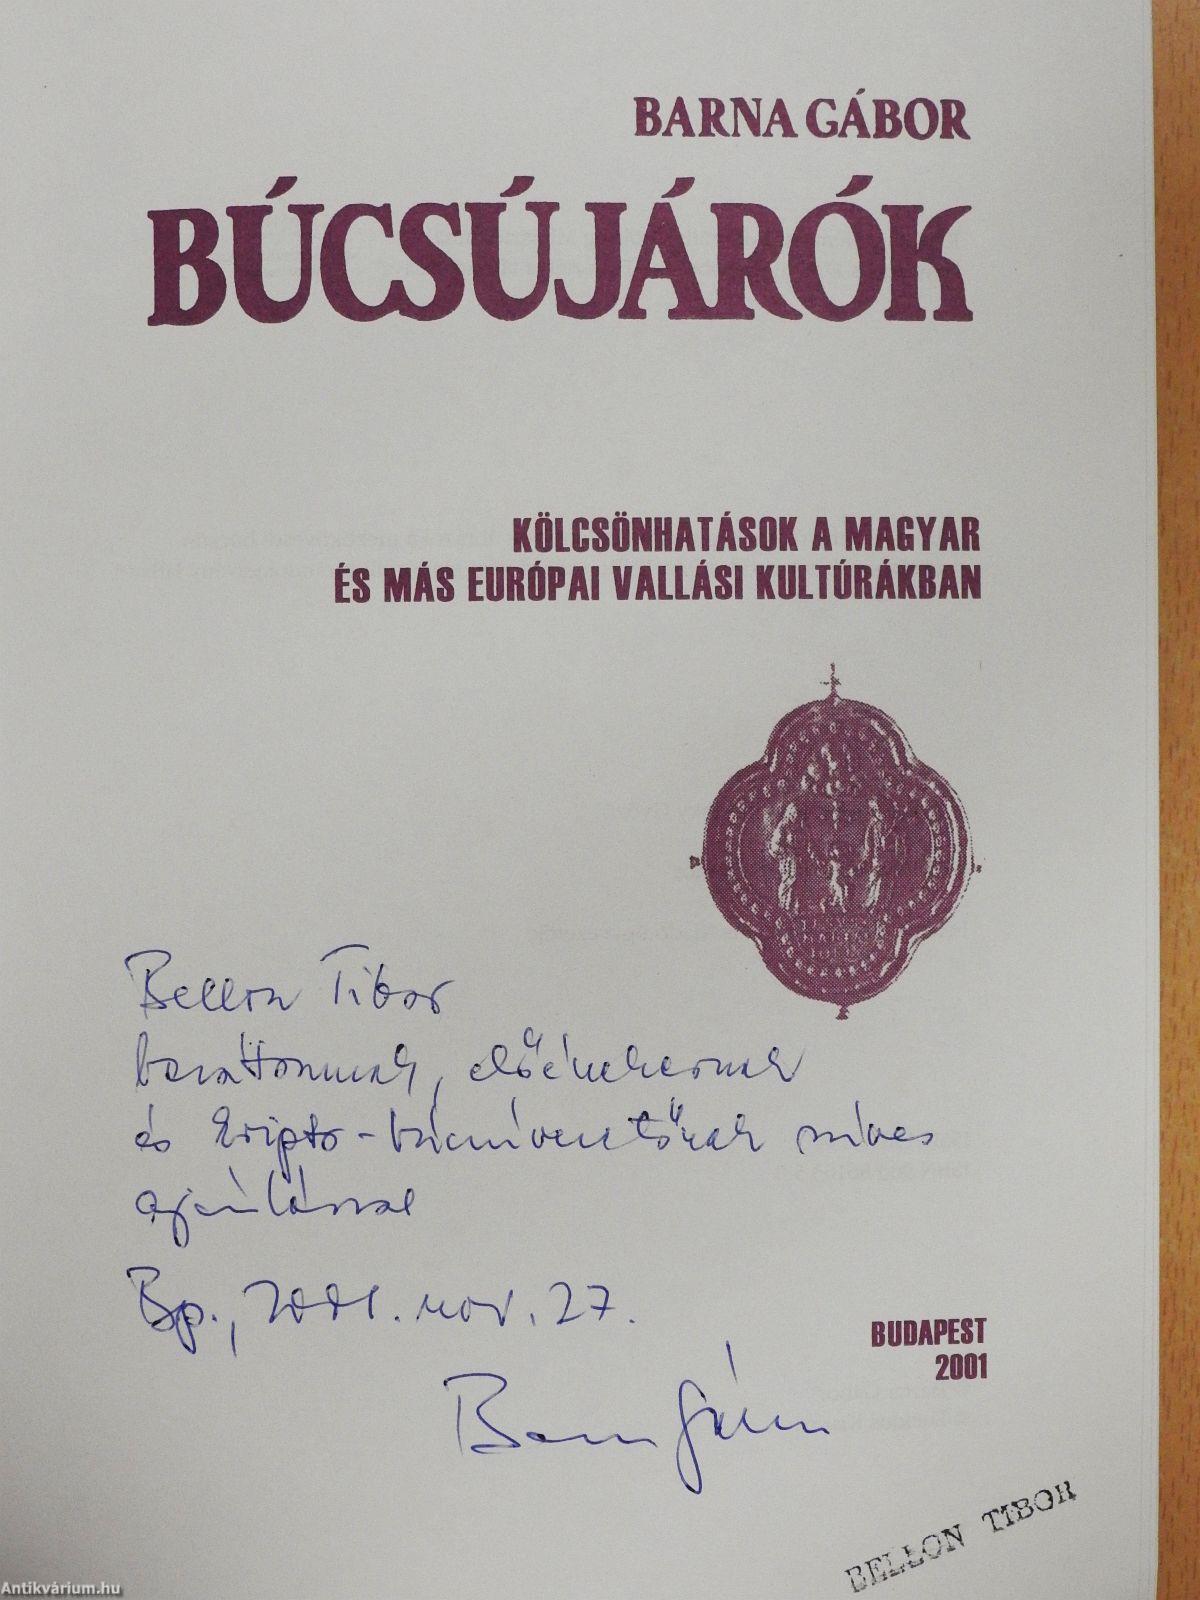 BARNA GÁBOR
BÚCSÚJÁRÓK
KÖLCSÖNHATÁSOK A MAGYAR
ÉS MÁS EURÓPAI VALLÁSI KULTÚRÁKBAN
Bellon Tibor
barátomnak, előénekesnek
és kripto-búcsúvezetőnek szíves
ajánlással
Bp., 2001. nov. 27.
Barna Gábor
BUDAPEST
2001
BELLON TIBOR
Antikvárium.hu